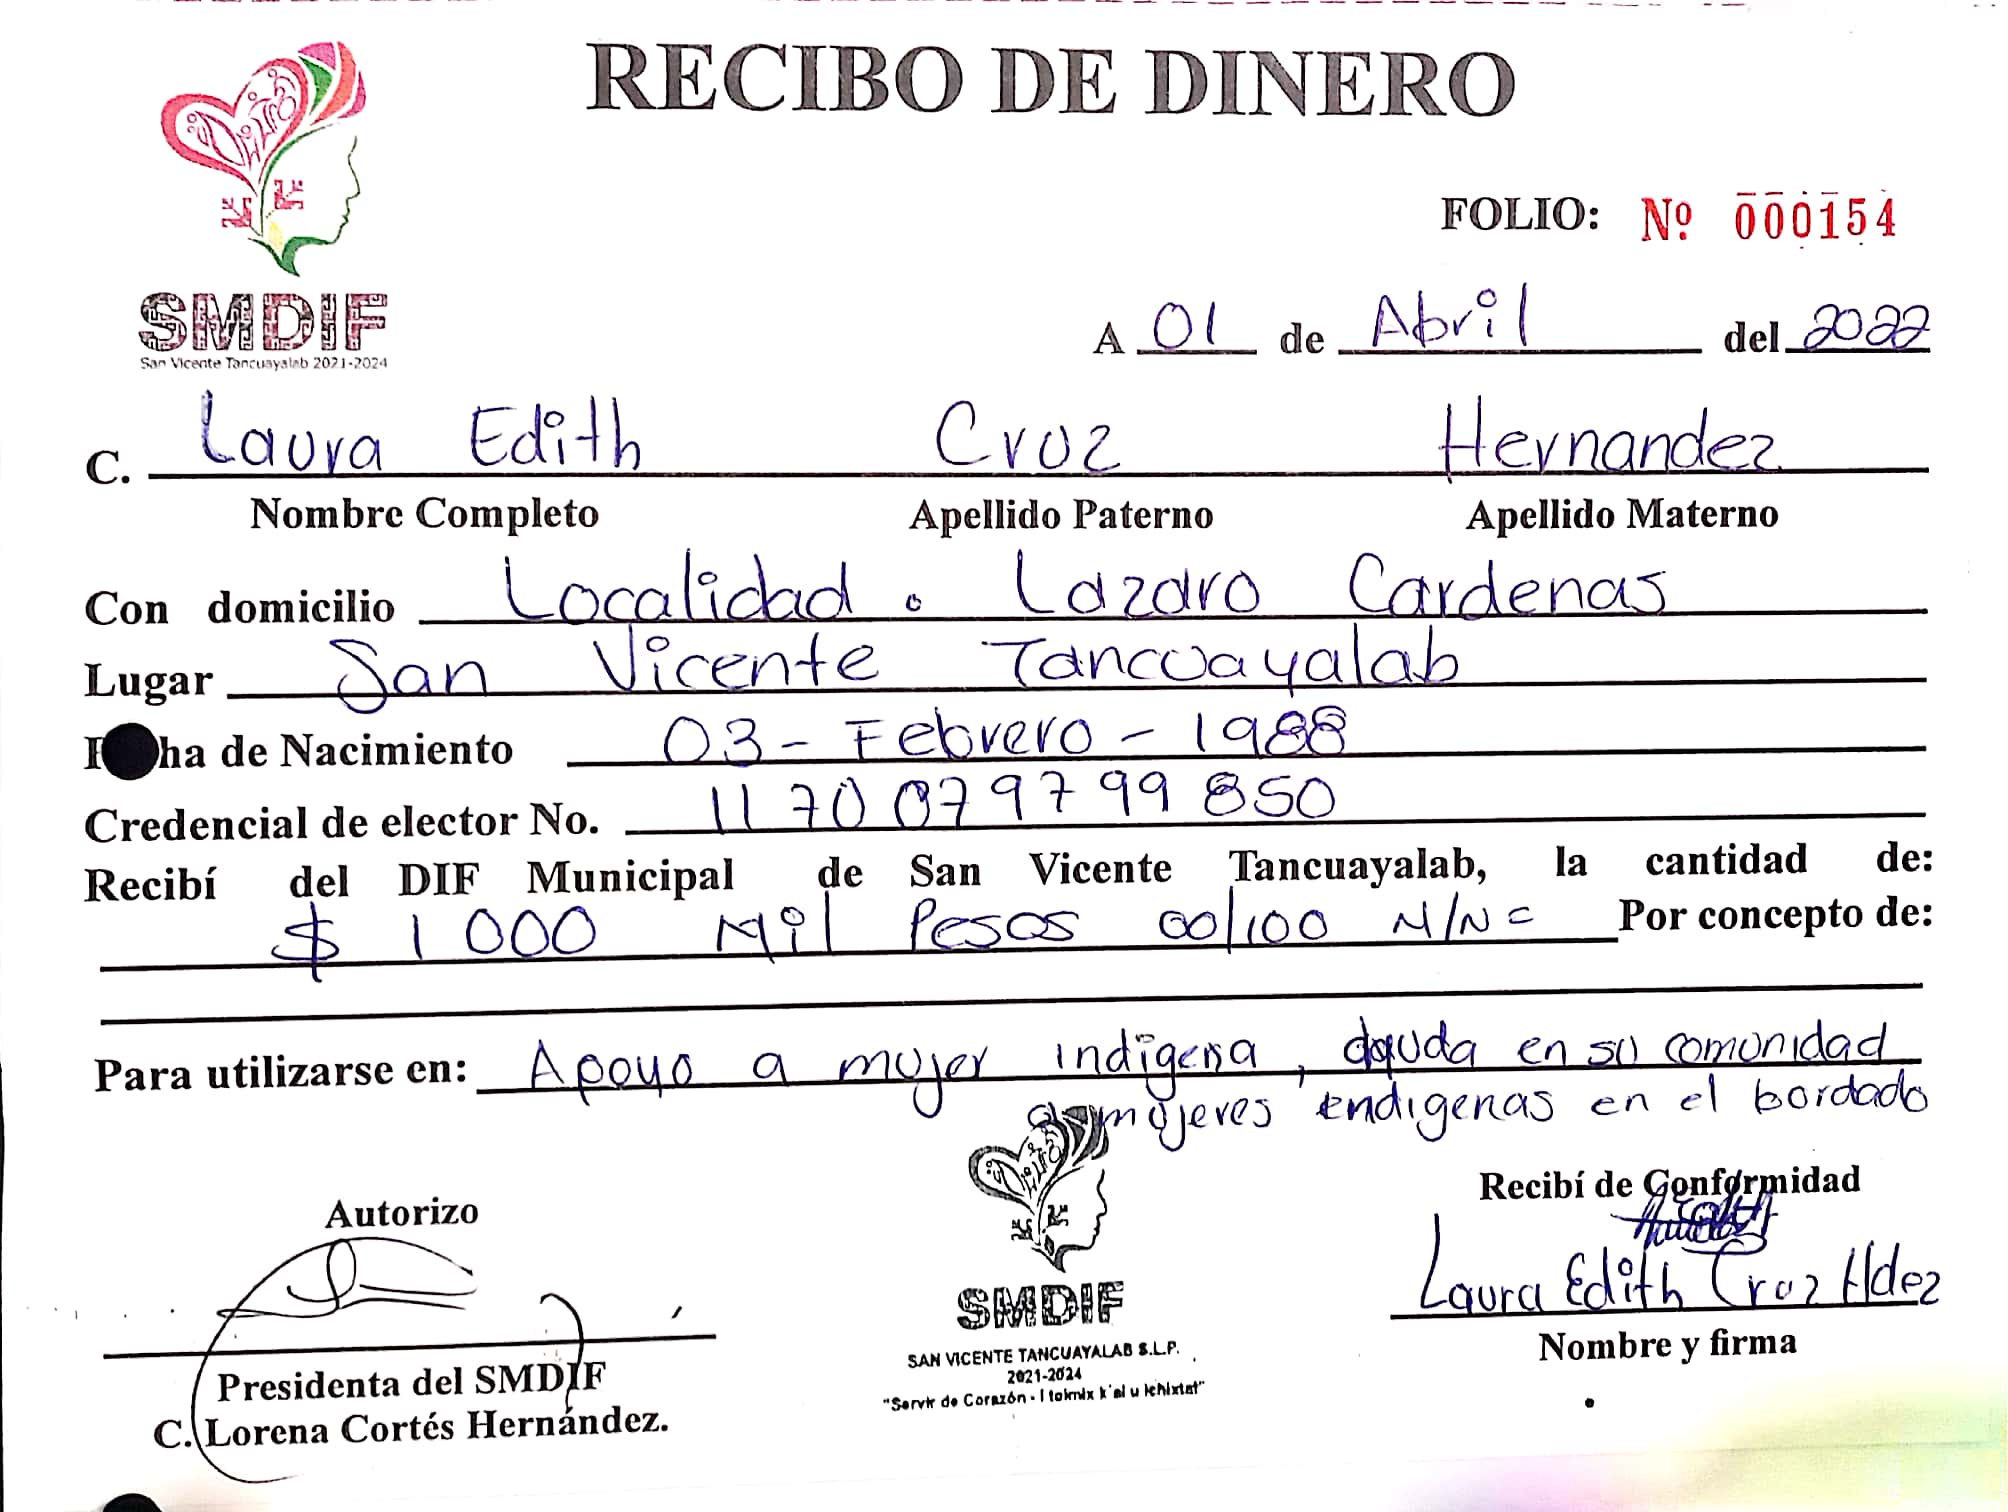 RECIBO DE DINERO
FOLIO: Nº 000154
SMDIF
San Vicente Tancuayalab 2021-2024
A 01 de Abril del 2022
C. Laura Edith Cruz Hernandez
Nombre Completo Apellido Paterno Apellido Materno
Con domicilio Localidad. Lazaro Cardenas
Lugar San Vicente Tancuayalab
ha de Nacimiento 03-Febrero-1988
Credencial de elector No. 1170079799850
Recibí del DIF Municipal de San Vicente Tancuayalab, la cantidad de:
$ 1 000 Mil Pesos 00/100 Por concepto de:
Para utilizarse en: Apoyo a mujer indigena, en su comunidad
mujeres endigenas en el bordado
Autorizo
Recibí de Conformidad
Laura Edith Cruz Hdez
Nombre y firma
Presidenta del SMDIF
C. Lorena Cortés Hernández.
SMDIF
SAN VICENTE TANCUAYALAB S.L.P.
2021-2024
"Servir de Corazón -